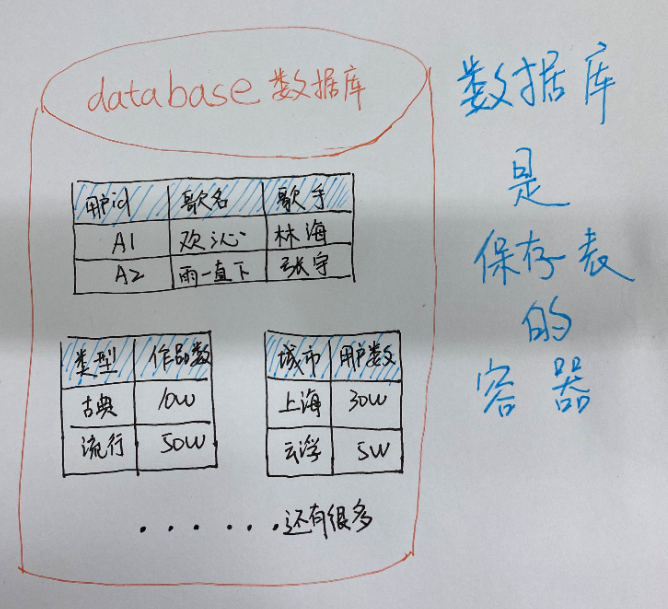 database 数据库
用户id 歌名 歌手
A1 欢沁 林海
A2 雨一直下 张宇
类型 作品数
古典 10W
流行 50W
城市 用户数
上海 30W
云浮 5W
......还有很多
数据库
是
保存表
的
容器